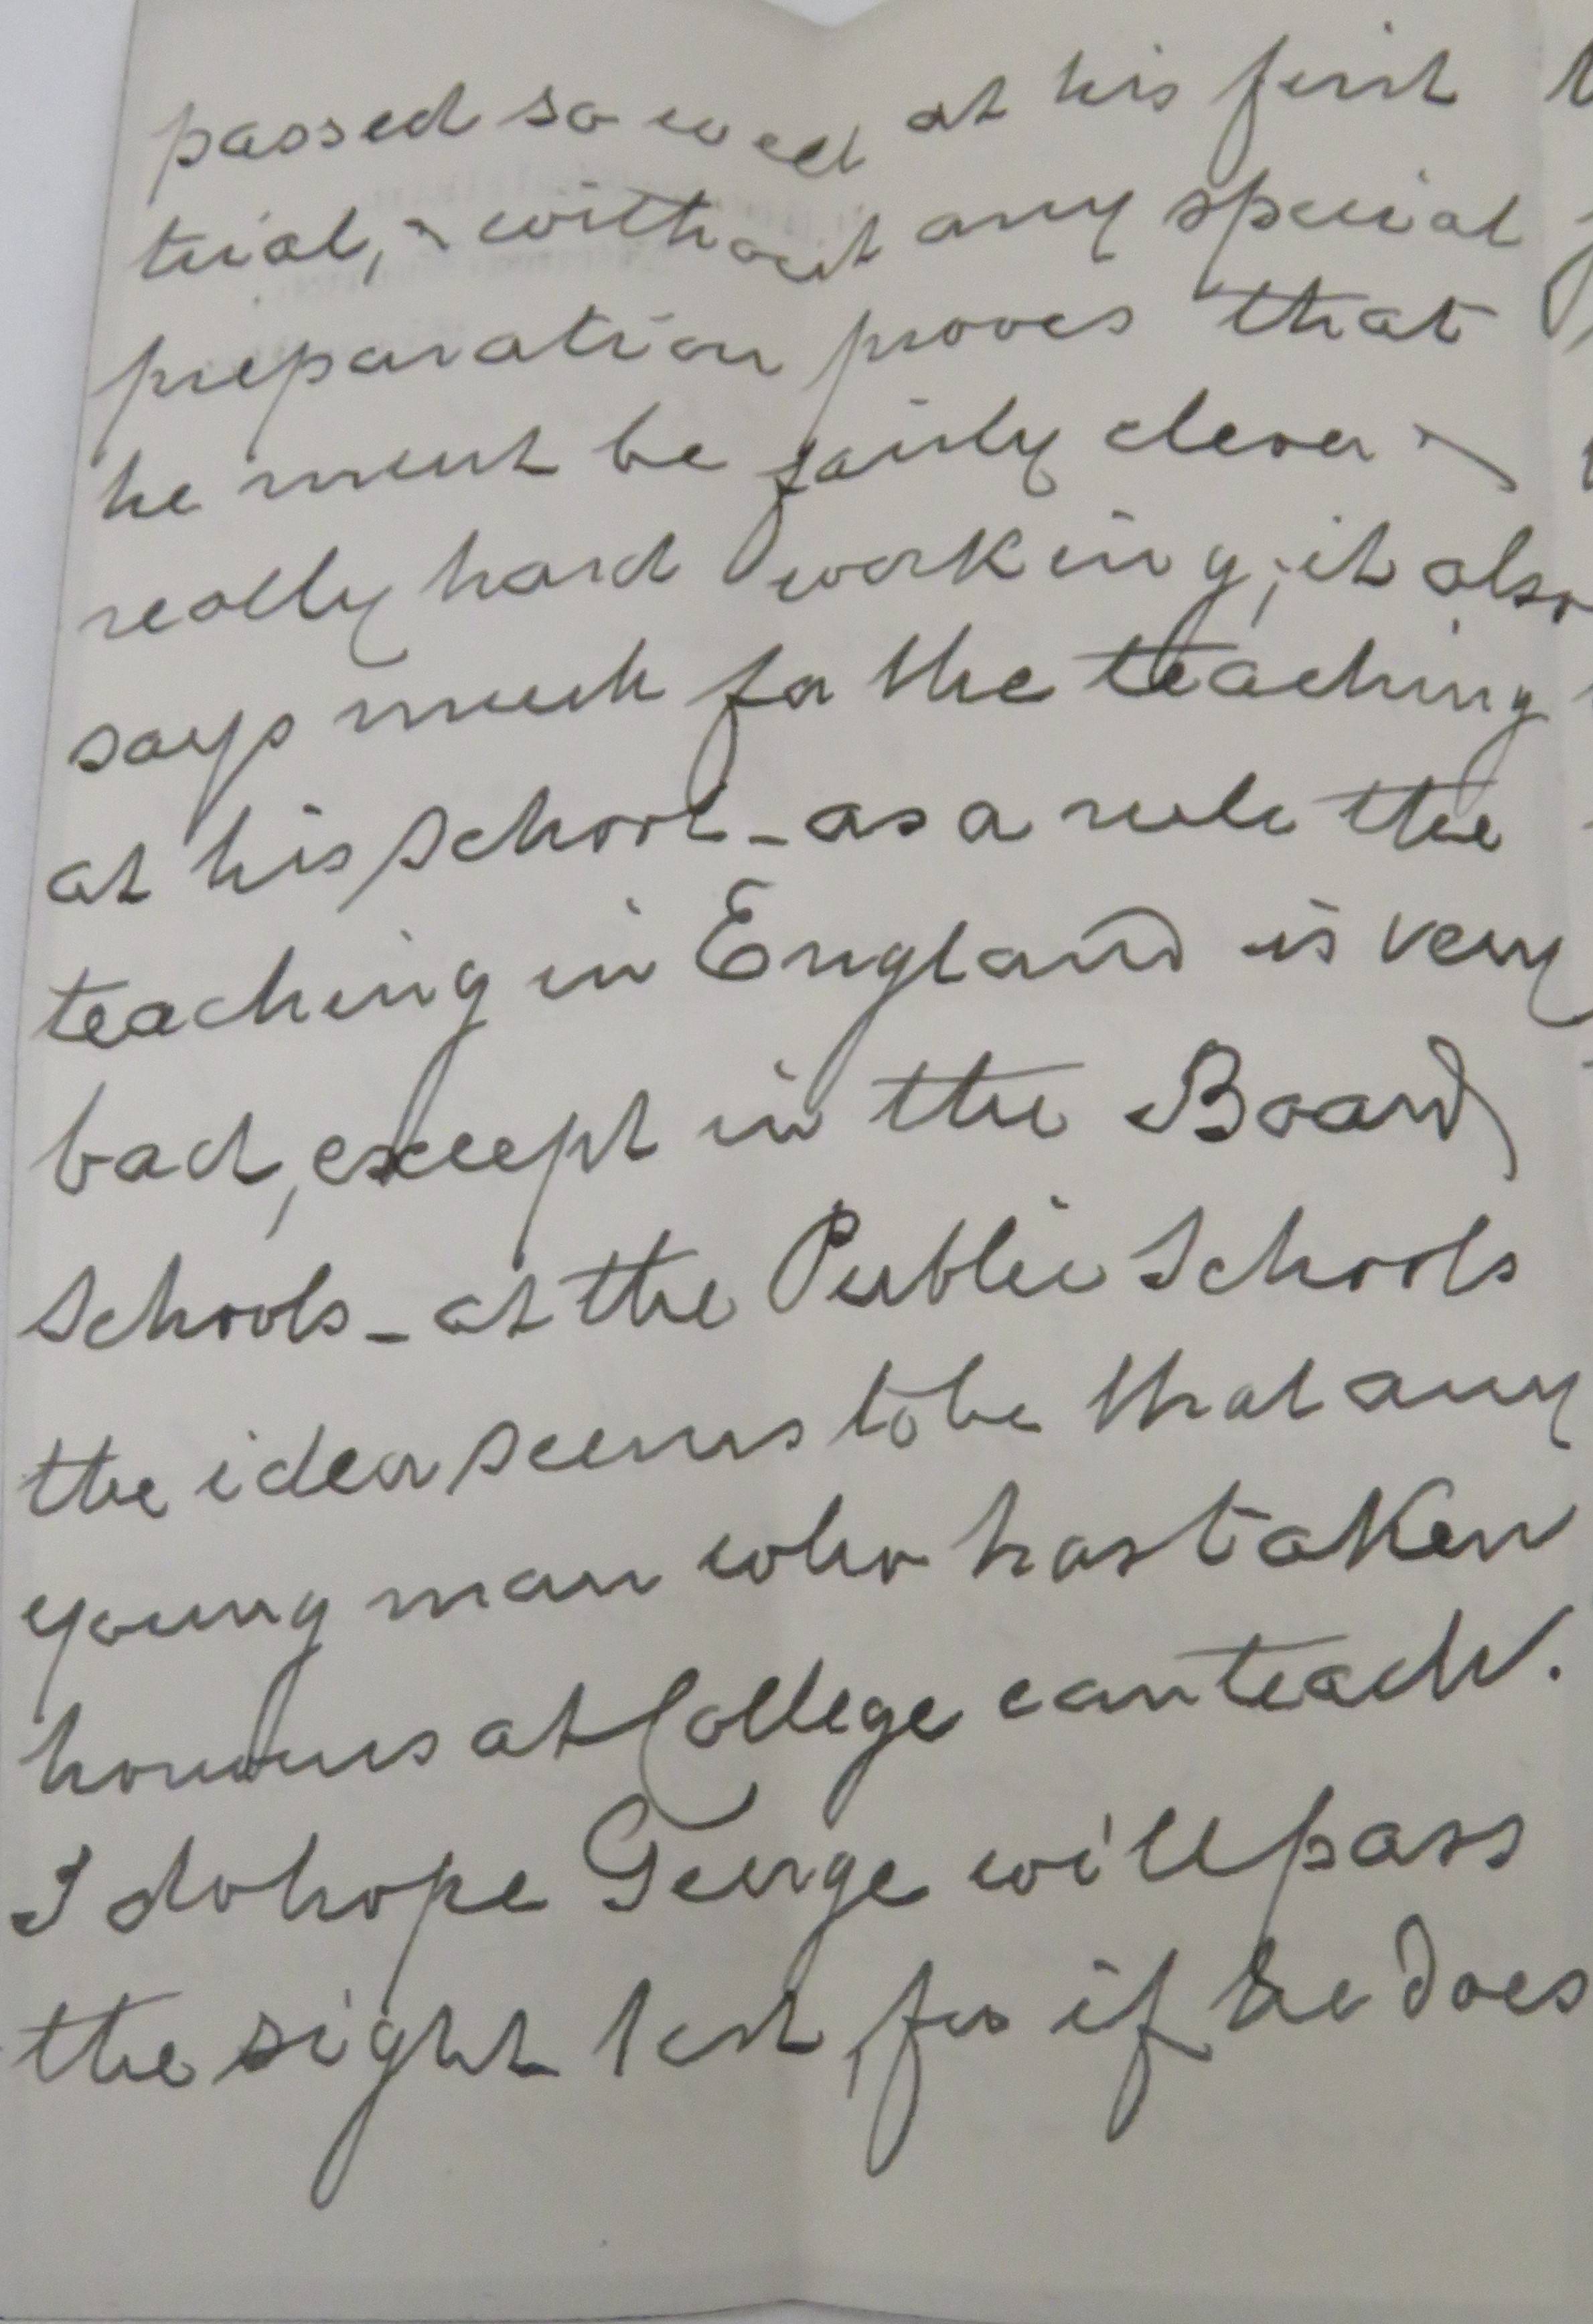 passed so well at his first
trial, & without any special
preparation proves that
he must be fairly clever &
really hard working; it also
says much for the teaching
at his School - as a rule the
teaching in England is very
bad, except in the Board
Schools - at the Public Schools
the idea seems to be that any
young man who has taken
honours at College can teach.
I do hope George will pass
the sight test, for if he does